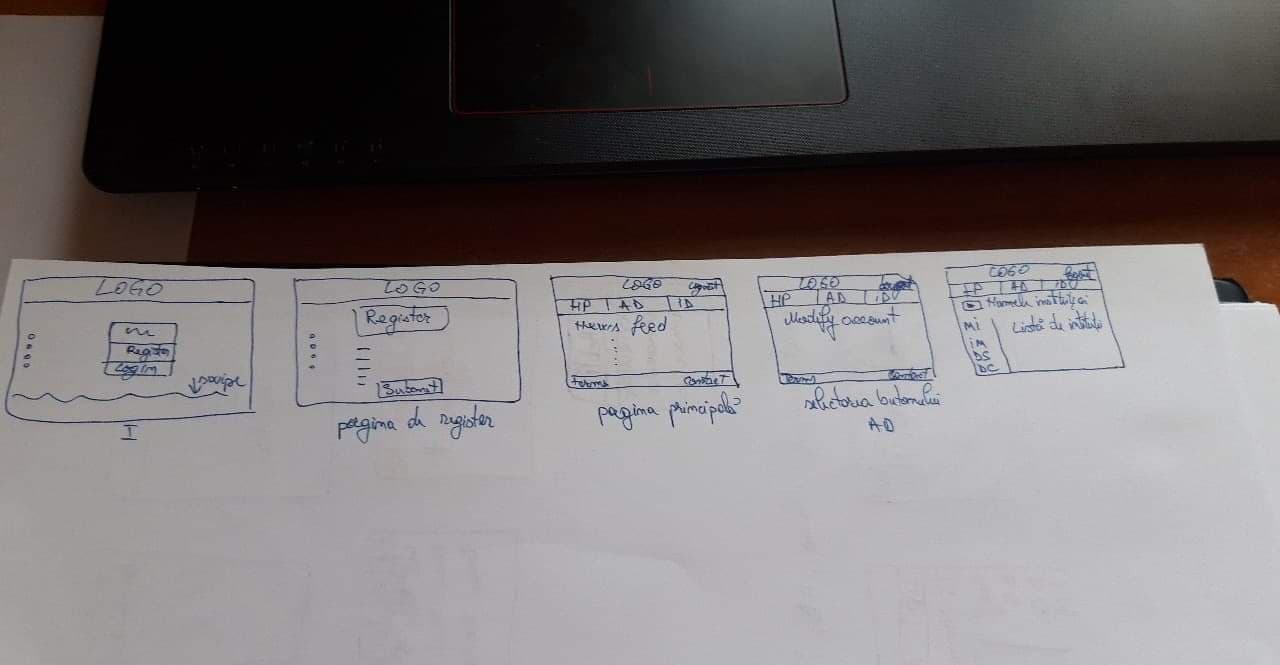 LOGO
Register
Login
swipe
I
LOGO
Register
Submit
pagina de register
LOGO
Logout
HP AD ID
News feed
Terms Contact
pagina principală
LOGO
Logout
HP AD ID
Modify account
Terms Contact
selectarea butonului
AD
LOGO
Logout
HP AD ID
Numele instituției
Mi
iM
DS
DC
Listă de instituții